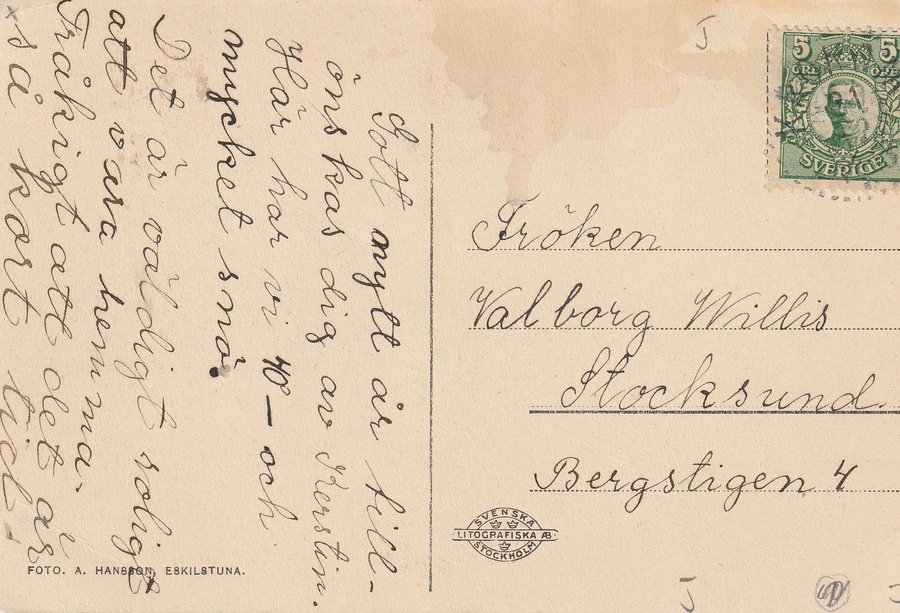 Gott nytt år till-
önskas dig av Kerstin.
Här har vi 40 — och
mycket snö.
Det är väldigt roligt
att vara hemma.
Tråkigt att det är
så kort tid!
5 5
ÖRE ÖRE
SVERIGE
Fröken
Valborg Willis
Stocksund
Bergstigen 4
SVENSKA
LITOGRAFISKA AB
STOCKHOLM
FOTO. A. HANSSON, ESKILSTUNA.